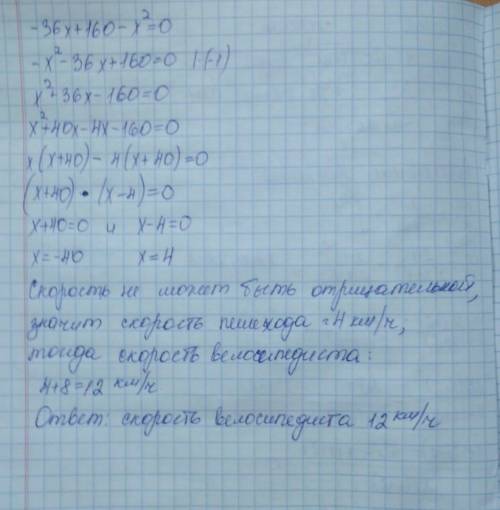 -36x+160-x²=0
-x²-36x+160=0 |·(-1)
x²+36x-160=0
x²+40x-4x-160=0
x(x+40)-4(x+40)=0
(x+40)•(x-4)=0
x+40=0 и x-4=0
x=-40 x=4
Скорость не может быть отрицательной,
значит скорость пешехода =4 км/ч,
тогда скорость велосипедиста:
4+8=12 км/ч
Ответ: скорость велосипедиста 12 км/ч